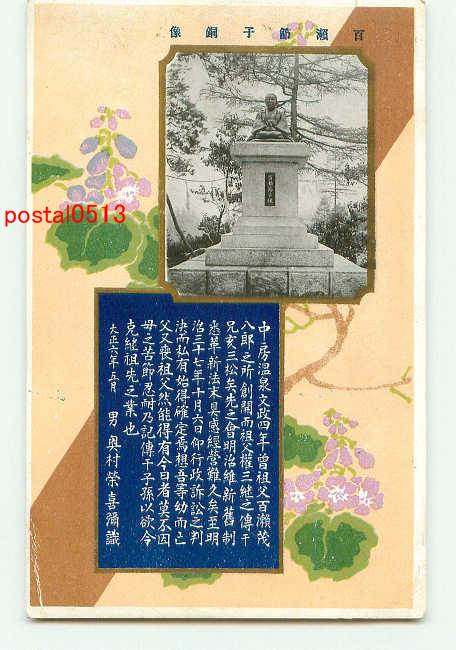 百瀬節子銅像
postal0513
中房温泉文政四年曾祖父百瀬茂
八郎之所創開而祖父權三継之傳于
兄亥三松矣先之會明治維新舊制
悉革新法未具感經營難久矣至明
治三十七年十月六日仰行政訴訟之判
決而私有始得確定焉想吾等幼而亡
父又喪祖父然能得有今日者莫不因
母之苦節忍耐乃記傳于子孫以欲令
克繼祖先之業也
大正六年五月 男 奥村榮喜彌識